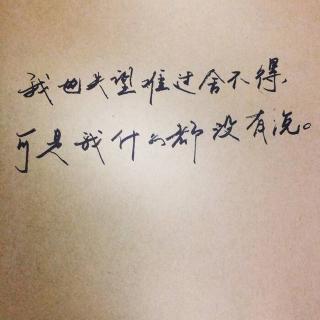 我也失望难过舍不得，
可是我什么都没有说。